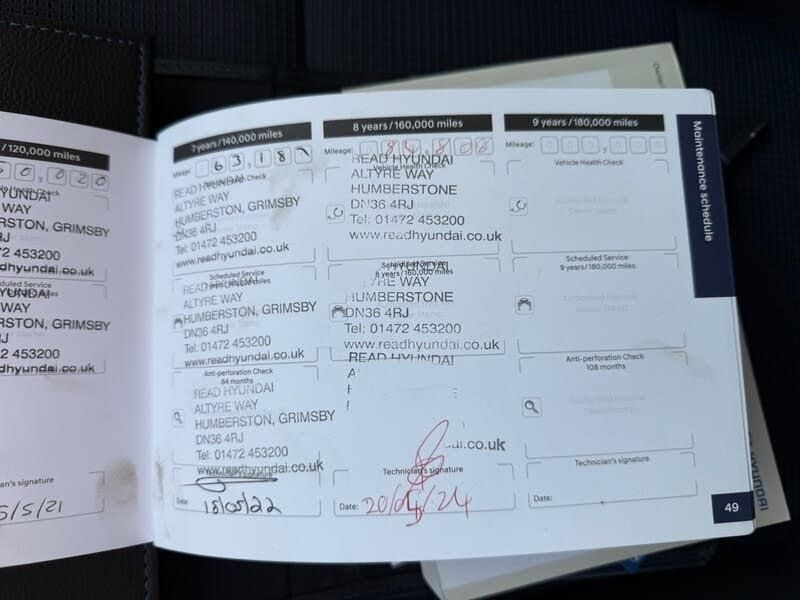 /120,000 miles
0,020
YUNDAI
WAY
RSTON, GRIMSBY
RJ
472 453200
dhyundai.co.uk
WAY
RSTON, GRIMSBY
RJ
472 453200
dhyundai.co.uk
an's signature
5/5/21
7 years/140,000 miles
Mileage: 63,187
Vehicle Health Check
READ HYUNDAI
ALTYRE WAY
HUMBERSTON, GRIMSBY
DN36 4RJ
Tel: 01472 453200
www.readhyundai.co.uk
Scheduled Service
READ HYUNDAI
ALTYRE WAY
HUMBERSTON, GRIMSBY
DN36 4RJ
Tel: 01472 453200
www.readhyundai.co.uk
Anti-perforation Check
84 months
READ HYUNDAI
ALTYRE WAY
HUMBERSTON, GRIMSBY
DN36 4RJ
Tel: 01472 453200
www.readhyundai.co.uk
Technician's signature
Date: 18/05/22
8 years/160,000 miles
Mileage: 84,808
READ HYUNDAI
Vehicle Health Check
ALTYRE WAY
HUMBERSTONE
DN36 4RJ
Tel: 01472 453200
www.readhyundai.co.uk
Scheduled Service
8 years/160,000 miles
HYUNDAI
YRE WAY
HUMBERSTONE
DN36 4RJ
Tel: 01472 453200
www.readhyundai.co.uk
READ HYUNDAI
A
.co.uk
Technician's signature
Date: 20/04/24
9 years/180,000 miles
Mileage:
Vehicle Health Check
Scheduled Service
9 years/180,000 miles
Anti-perforation Check
108 months
Technician's signature
Date:
Maintenance schedule
49
HYUNDAI